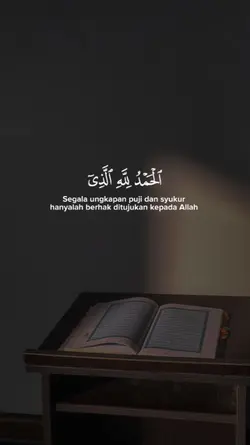 ٱلْحَمْدُ لِلَّهِ ٱلَّذِىٓ
Segala ungkapan puji dan syukur
hanyalah berhak ditujukan kepada Allah